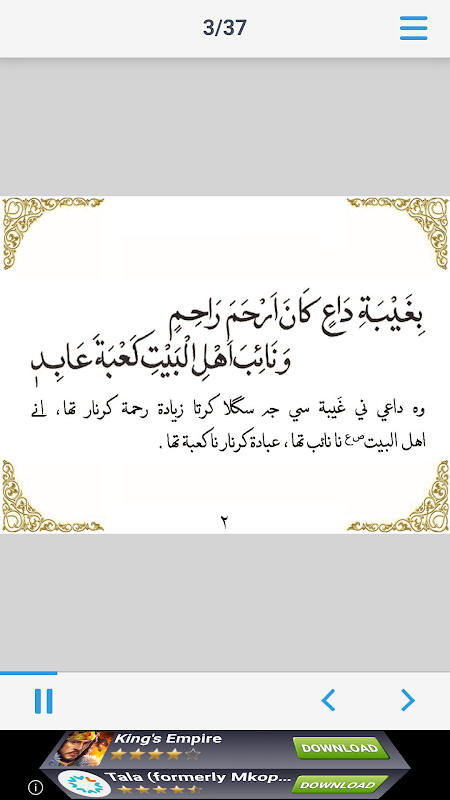 3/37
بِغَيْبَةِ دَاعٍ كَانَ اَرْحَمَ رَاحِمٍ
وَنَائِبَ اَهْلِ الْبَيْتِ كَعْبَةَ عَابِدٖ
وه داعي ني غَيبة سي جہ سگلا كرتا زيادة رحمة كرنار تھا، انے
اهل البيت صع نا نائب تھا، عبادة كرنار نا كعبة تھا.
٢
King's Empire
DOWNLOAD
Tala (formerly Mkop...
DOWNLOAD